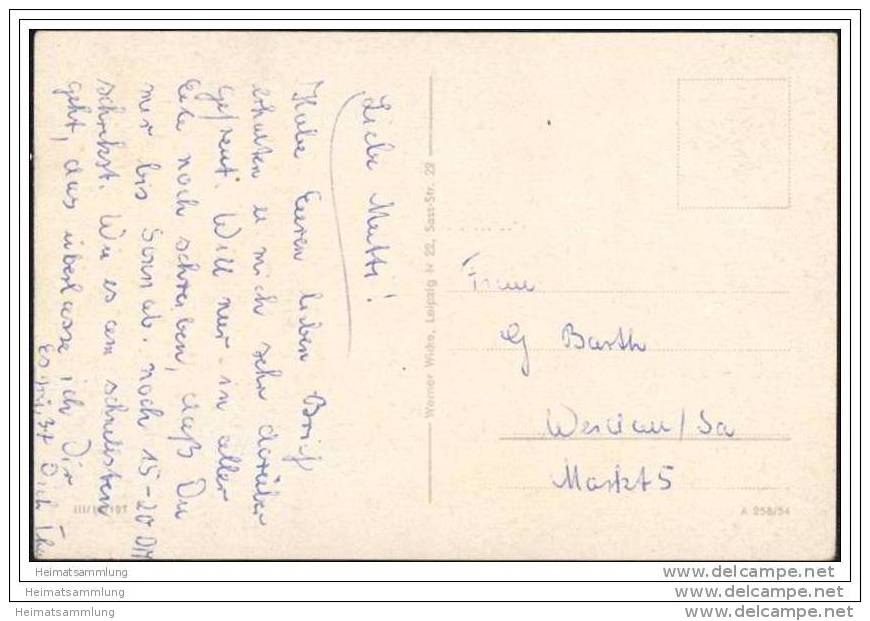 Liebe Mutti!
Habe Euren lieben Brief
erhalten u mich sehr darüber
gefreut. Will nur in aller
Eile noch schreiben, daß Du
mir bis Sonnab. noch 15-20 DM
schickst. Wie es am schnellsten
geht, das überlasse ich Dir
Es grüßt Dich
Werner Wicke, Leipzig N 22, Sass-Str. 22
Frau
G Barth
Werdau/Sa
Markt 5
A 258/54
Heimatsammlung
www.delcampe.net
Heimatsammlung
www.delcampe.net
Heimatsammlung
www.delcampe.net